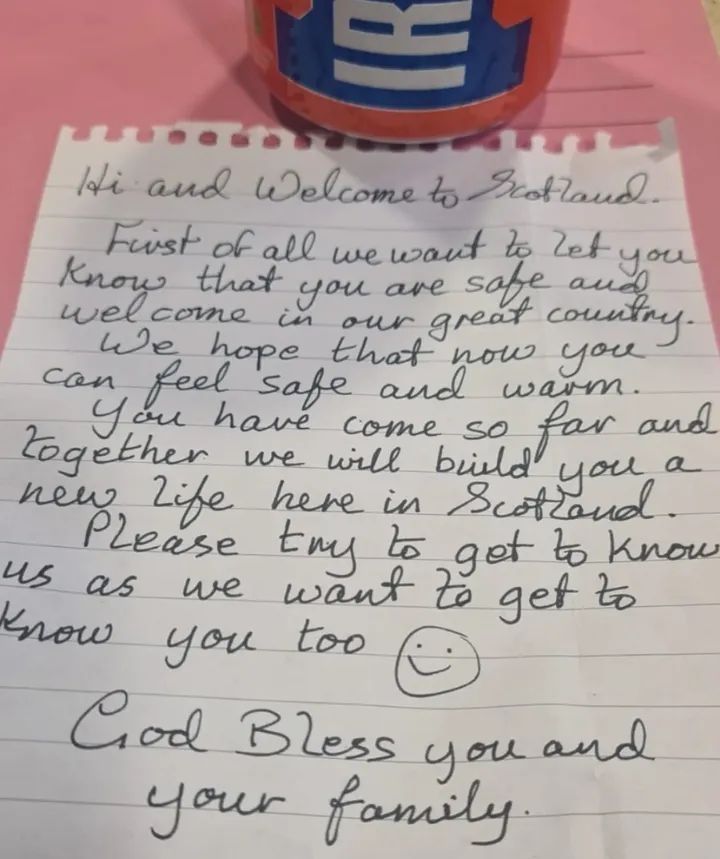 IR
Hi and Welcome to Scotland.
First of all we want to let you
know that you are safe and
welcome in our great country.
We hope that now you
can feel safe and warm.
You have come so far and
together we will build you a
new life here in Scotland.
Please try to get to know
us as we want to get to
know you too
God Bless you and
your family.